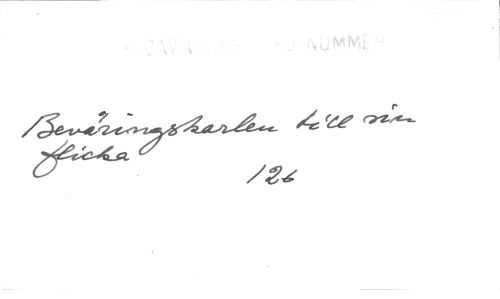 NUMMER
Beväringskarlen till sin
flicka
126